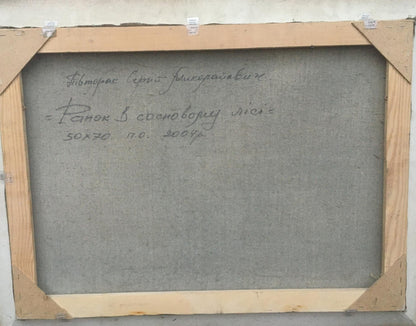 Півторак Сергій Миколайович
"Ранок в сосновому лісі"
50х70 п.о. 2004р